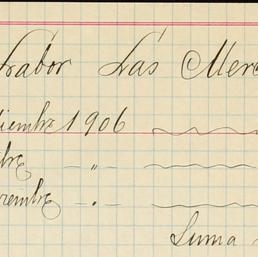 Labor Las Merc
tiembre 1906
bre - " -
viembre - " -
Suma